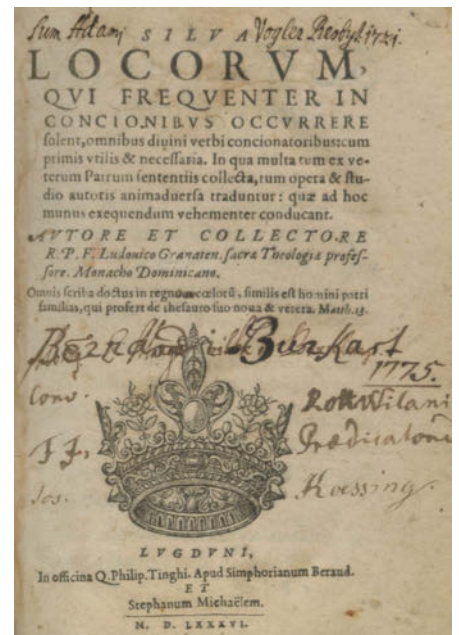 Sum Adami Vogler Presbyt 1721.
SILVA
LOCORVM,
QVI FREQVENTER IN
CONCIONIBVS OCCVRRERE
solent, omnibus diuini verbi concionatoribus: cum
primis vtilis & necessaria. In qua multa tum ex ve-
terum Patrum sententiis collecta, tum opera & stu-
dio autoris animaduersa traduntur: quæ ad hoc
munus exequendum vehementer conducant.
AVTORE ET COLLECTORE
R. P. F. Ludouico Granaten. sacræ Theologiæ profes-
sore. Monacho Dominicano.
Omnis scriba doctus in regno cœlorū, similis est homini patri
familias, qui profert de thesauro suo noua & vetera. Matth. 13.
Burkast
1775.
Conv. Rottwilani
FF. Prædicatorū
Jos. Koessing.
LVGDVNI,
In officina Q. Philip. Tinghi. Apud Simphorianum Beraud.
ET
Stephanum Michaëlem.
M. D. LXXXVI.